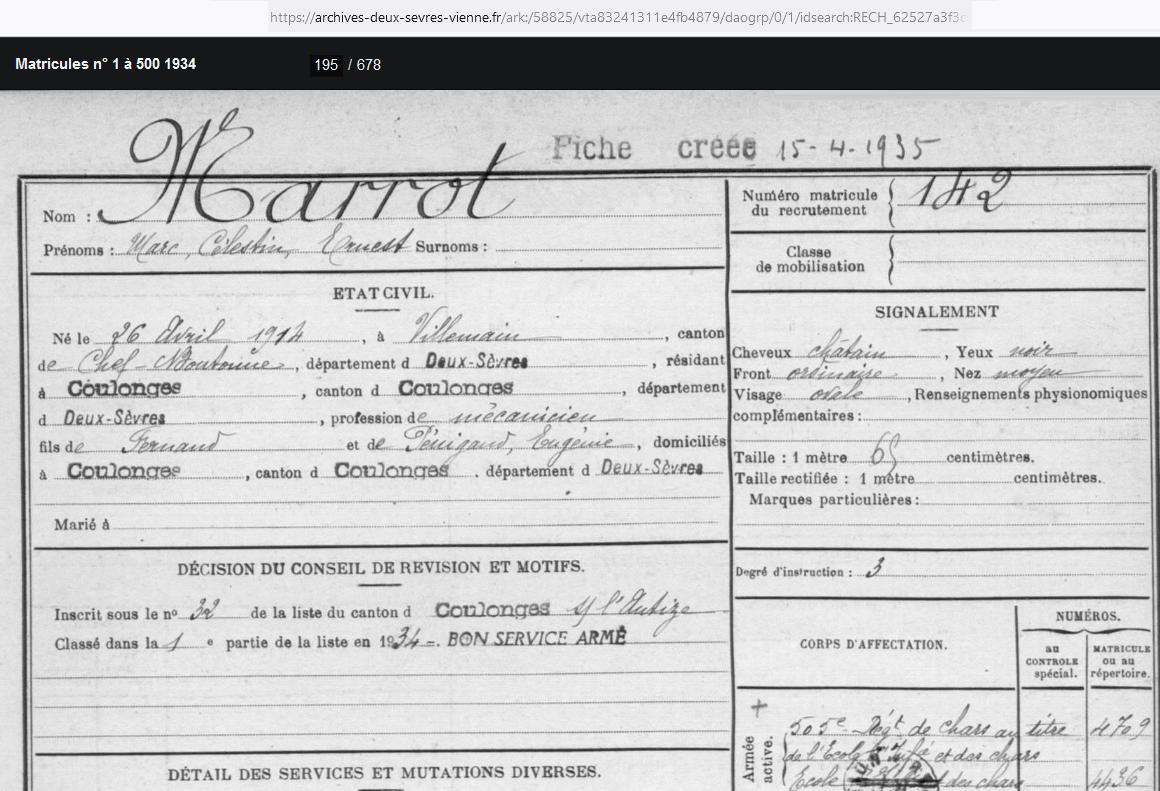 https://archives-deux-sevres-vienne.fr/ark:/58825/vta83241311e4fb4879/daogrp/0/1/idsearch:RECH_62527a3f3c
Matricules n° 1 à 500 1934 195 / 678
Fiche créée 15-4-1935
Nom : Marrot
Prénoms : Marc, Célestin, Ernest Surnoms :
ETAT CIVIL.
Né le 26 Avril 1914, à Villemain, canton
de Chef-Boutonne, département d Deux-Sèvres, résidant
à Coulonges, canton d Coulonges, département
d Deux-Sèvres, profession de mécanicien
fils de Fernand et de Pénigaud, Eugénie, domiciliés
à Coulonges, canton d Coulonges. département d Deux-Sèvres
Marié à
DÉCISION DU CONSEIL DE REVISION ET MOTIFS.
Inscrit sous le no 32 de la liste du canton d Coulonges s/ l'Autize
Classé dans la 1 e partie de la liste en 1934-. BON SERVICE ARMÉ
DÉTAIL DES SERVICES ET MUTATIONS DIVERSES.
Numéro matricule
du recrutement 142
Classe
de mobilisation
SIGNALEMENT
Cheveux châtain, Yeux noir
Front ordinaire, Nez moyen
Visage ovale, Renseignements physionomiques
complémentaires :
Taille : 1 mètre 65 centimètres.
Taille rectifiée : 1 mètre centimètres.
Marques particulières :
Degré d'instruction : 3
CORPS D'AFFECTATION.
NUMÉROS.
au
CONTROLE
spécial.
MATRICULE
ou au
répertoire.
Armée
active.
505e Régt de chars au titre 4709
de l'Ecole et des chars
Ecole des chars 4436